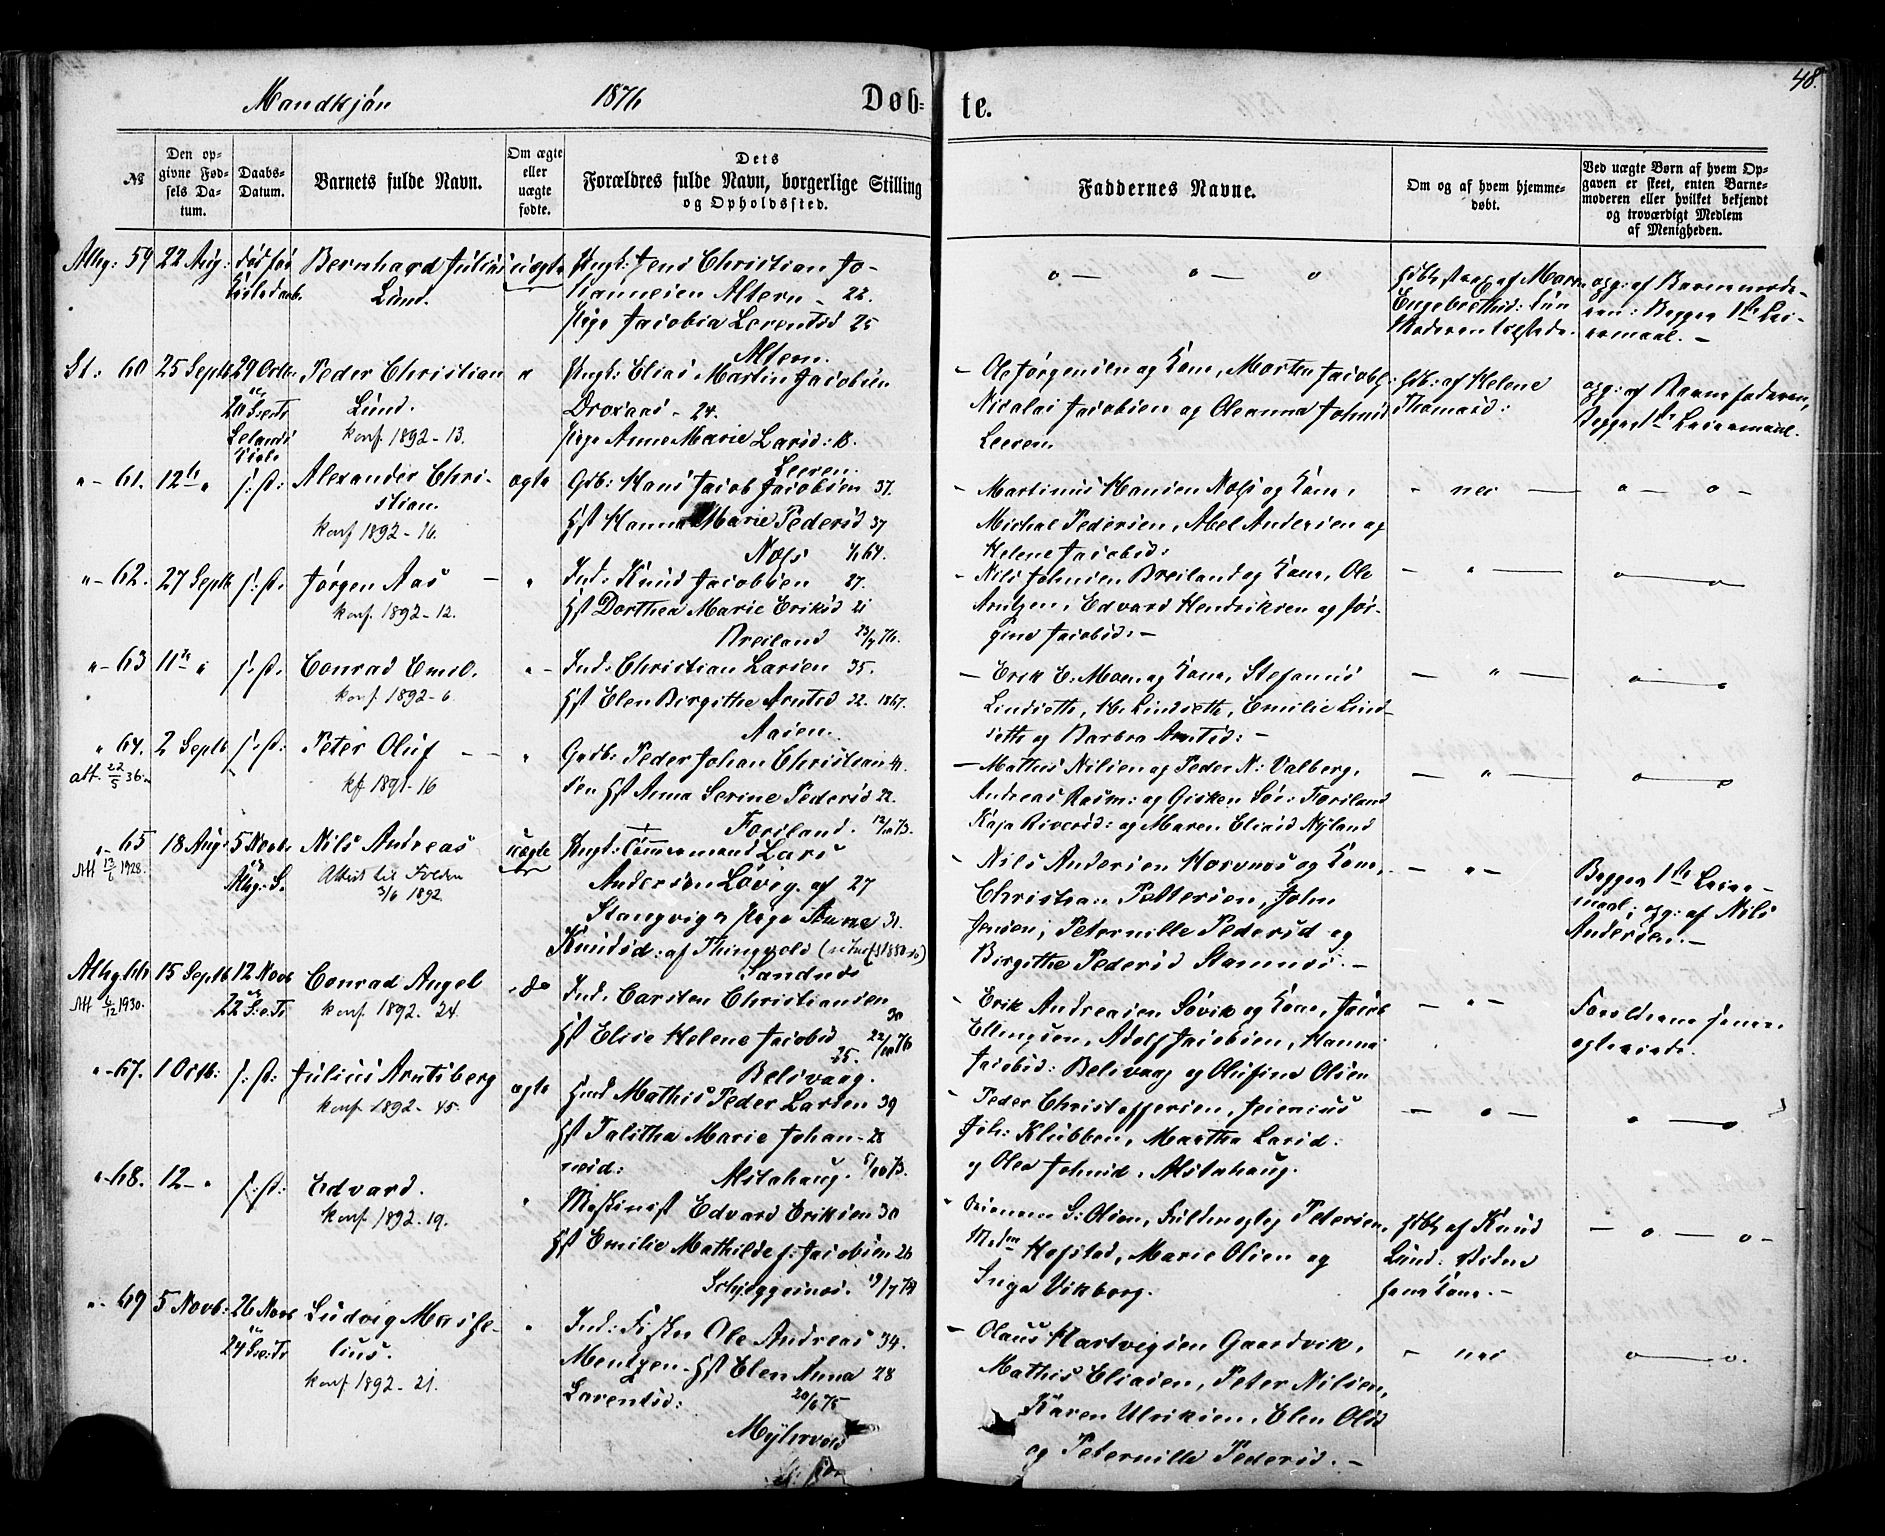 48.
Mandkjön 1876 Døb-
te.
№
Den op-
givne Fød-
sels Da-
tum.
Daabs-
Datum.
Barnets fulde Navn.
Om ægte
eller
uægte
fødte.
Dets
Forældres fulde Navn, borgerlige Stilling
og Opholdssted.
Faddernes Navne.
Om og af hvem hjemme-
døbt.
Ved uægte Børn af hvem Op-
gaven er skeet, enten Barne-
moderen eller hvilket bekjendt
og troværdigt Medlem
af Menigheden.
Alhg: 59
22 Aug:
Bernhard Julius
Lund.
uægte
Ungk: Jens Christian Jo-
hannesen Altern - 22.
Pige Jacobia Lorentsd 25
Altern.
opg: af Barnemode-
ren: Begges 1ste Lei-
ermaal. -
St: 60
25 Septb
29 Octbr
20 S.e.Tr
Peder Christian
Lund.
konf. 1892 - 13.
"
Ungk: Elias Martin Jacobsen
Droxaas - 24.
Pige Anne Marie Larsd: 18.
Leeren.
- Ole Jørgensen og Kone, Morten Jacobs:
Nicolai Jacobsen og Oleanna Johnsd
Leeren
hdb: af Helene
Thomasd:
opg: af Barnefaderen,
Begges 1ste Leiermaal.
" - 61.
12te "
s: st:
Alexander Chri-
stian.
konf 1892 - 16.
ægte
Gdb: Hans Jacob Jacobsen 37.
Hst Hanna Marie Pedersd 37
Næss 64.
- Martinus Hansen Næss og Kone,
Michal Pedersen, Abel Andersen og
Helene Jacobsd:
- nei -
" - 62.
27 Septb
s: st:
Jørgen Aas -
konf. 1892 - 12.
"
Ind: Knud Jacobsen 27.
Hst Dorthea Marie Eriksd 21
Breiland 23/7 76.
- Nils Johnsen Breiland og Kone, Ole
Arntzen, Edvard Hendriksen og Jør-
gine Jacobsd: -
" - 63
11te "
s: st:
Conrad Emil.
konf. 1892 - 6.
" -
Ind: Christian Larsen 35.
Hst Elen Birgithe Arntsd 32. 1867.
Aasen.
- Erik E. Moen og Kone, Stefanus
Lindsette, H. Lindsette, Emilie Lind-
sette og Barbra Arntsd: -
" 64.
att. 22/5 36.
2 Septb
s: st:
Peter Oluf -
kf 1891 - 16
"
Gdb: Peder Johan Christian 41.
sen Hst Anna Serine Pedersd 22.
Forsland. 12/10 73.
- Mathis Nilsen og Peder N: Valberg,
Andreas Rasm: og Gisken Sør: Forsland
Kaja Iversd: og Maren Eliasd Nyland
" - 65
Att 13/6 1928.
18 Aug:
5 Novbr
Alhg: S.
Nils Andreas
Attest til Folden
3/6 1892.
uægte
Ungk: Tømmermand Lars
Andersen Løvig af 27
Stangvig og Pige Anne 31.
Knudsd: af Thingvold
Sandnes
- Nils Andersen Horvnes og Kone,
Christian Pettersen, John
Jensen, Peternille Pedersd og
Birgithe Pedersd Stamnes. -
Begges 1ste Leier-
maal; opg: af Nils
Andersen. -
Alhg 66
Att 6/12 1930.
15 Septb
12 Novb
22 S.e.Tr
Conrad Angel
konf. 1892. 24.
- do
Ind: Carsten Christiansen
30
Hst Elise Helene Jacobsd 22/10 76
25.
Belsvaag.
- Erik Andreasen Søvik og Kone, Jacob
Ellingsen, Adolf Jacobsen, Hanna
Jacobsd: Belsvaag og Olufine Olsen
Forældrene senere
ægteviede.
" - 67.
1 Octb:
s: st:
Julius Arntsberg
konf. 1892 - 45.
ægte
Hmd Mathis Peder Larsen 39
Hst Talitha Marie Johan- 28
nesd: Alstahaug. 5/10 73.
- Peder Christoffersen, Jeienius
Joh: Klubben, Martha Larsd:
og Olea Johnsd, Alstahaug.
" - 68.
12 - "
s: st:
Edvard.
konf. 1892 - 19.
"
Maskinist Edvard Eriksen 30
Hst Emilie Mathilde f: Jacobsen 26
S: Olsen, Fuldmægtig Petersen,
Madm Hofstad, Marie Olsen og
Inga Vikborg.
hdbt af Knud
Lund.
" - 69
5 Novb:
26 Novb
24 S.e.Tr
Ludvig Mathe-
lius.
konf 1892 - 21.
"
Ind: Fisker Ole Andreas 34.
Mentzen - Hst Elen Anna 28
Larentsd: 20/6 75
- Olaus Hartvigsen Gaardvik,
Mathis Eliasen, Peter Nilsen,
Karen Ulriksen, Elen Olsd
og Peternille Pedersd. -
- nei